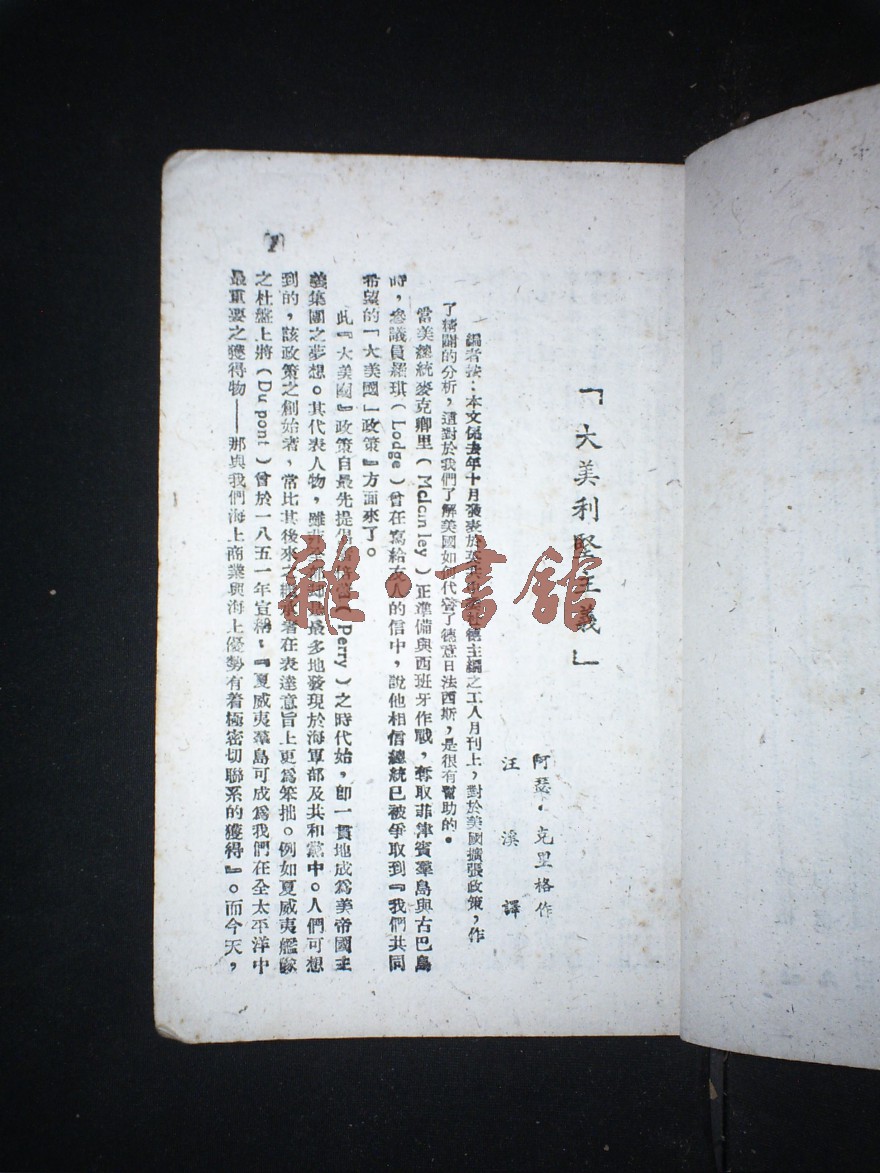 「大美利堅主義」
阿瑟·克里格作
汪溪譯
編者按：本文係去年十月發表於英共杜德主編之工人月刊上，對於美國擴張政策，作
了精闢的分析，這對於我們了解美國如何代替了德意日法西斯，是很有幫助的。
當美總統麥克卿里（McKinley）正準備與西班牙作戰，奪取菲津賓羣島與古巴島
時，參議員羅琪（Lodge）曾在寫給友人的信中，說他相信總統已被爭取到『我們共同
希望的「大美國」政策』方面來了。
此『大美國』政策自最先提倡（Perry）之時代始，卽一貫地成爲美帝國主
義集團之夢想。其代表人物，雖非全部最多地發現於海軍部及共和黨中。人們可想
到的，該政策之創始者，常比其後來之繼承者在表達意旨上更爲笨拙。例如夏威夷艦隊
之杜盤上將（Du pont）曾於一八五一年宣稱：『夏威夷羣島可成爲我們在全太平洋中
最重要之獲得物——那與我們海上商業與海上優勢有着極密切聯系的獲得』。而今天，
雜·書舘